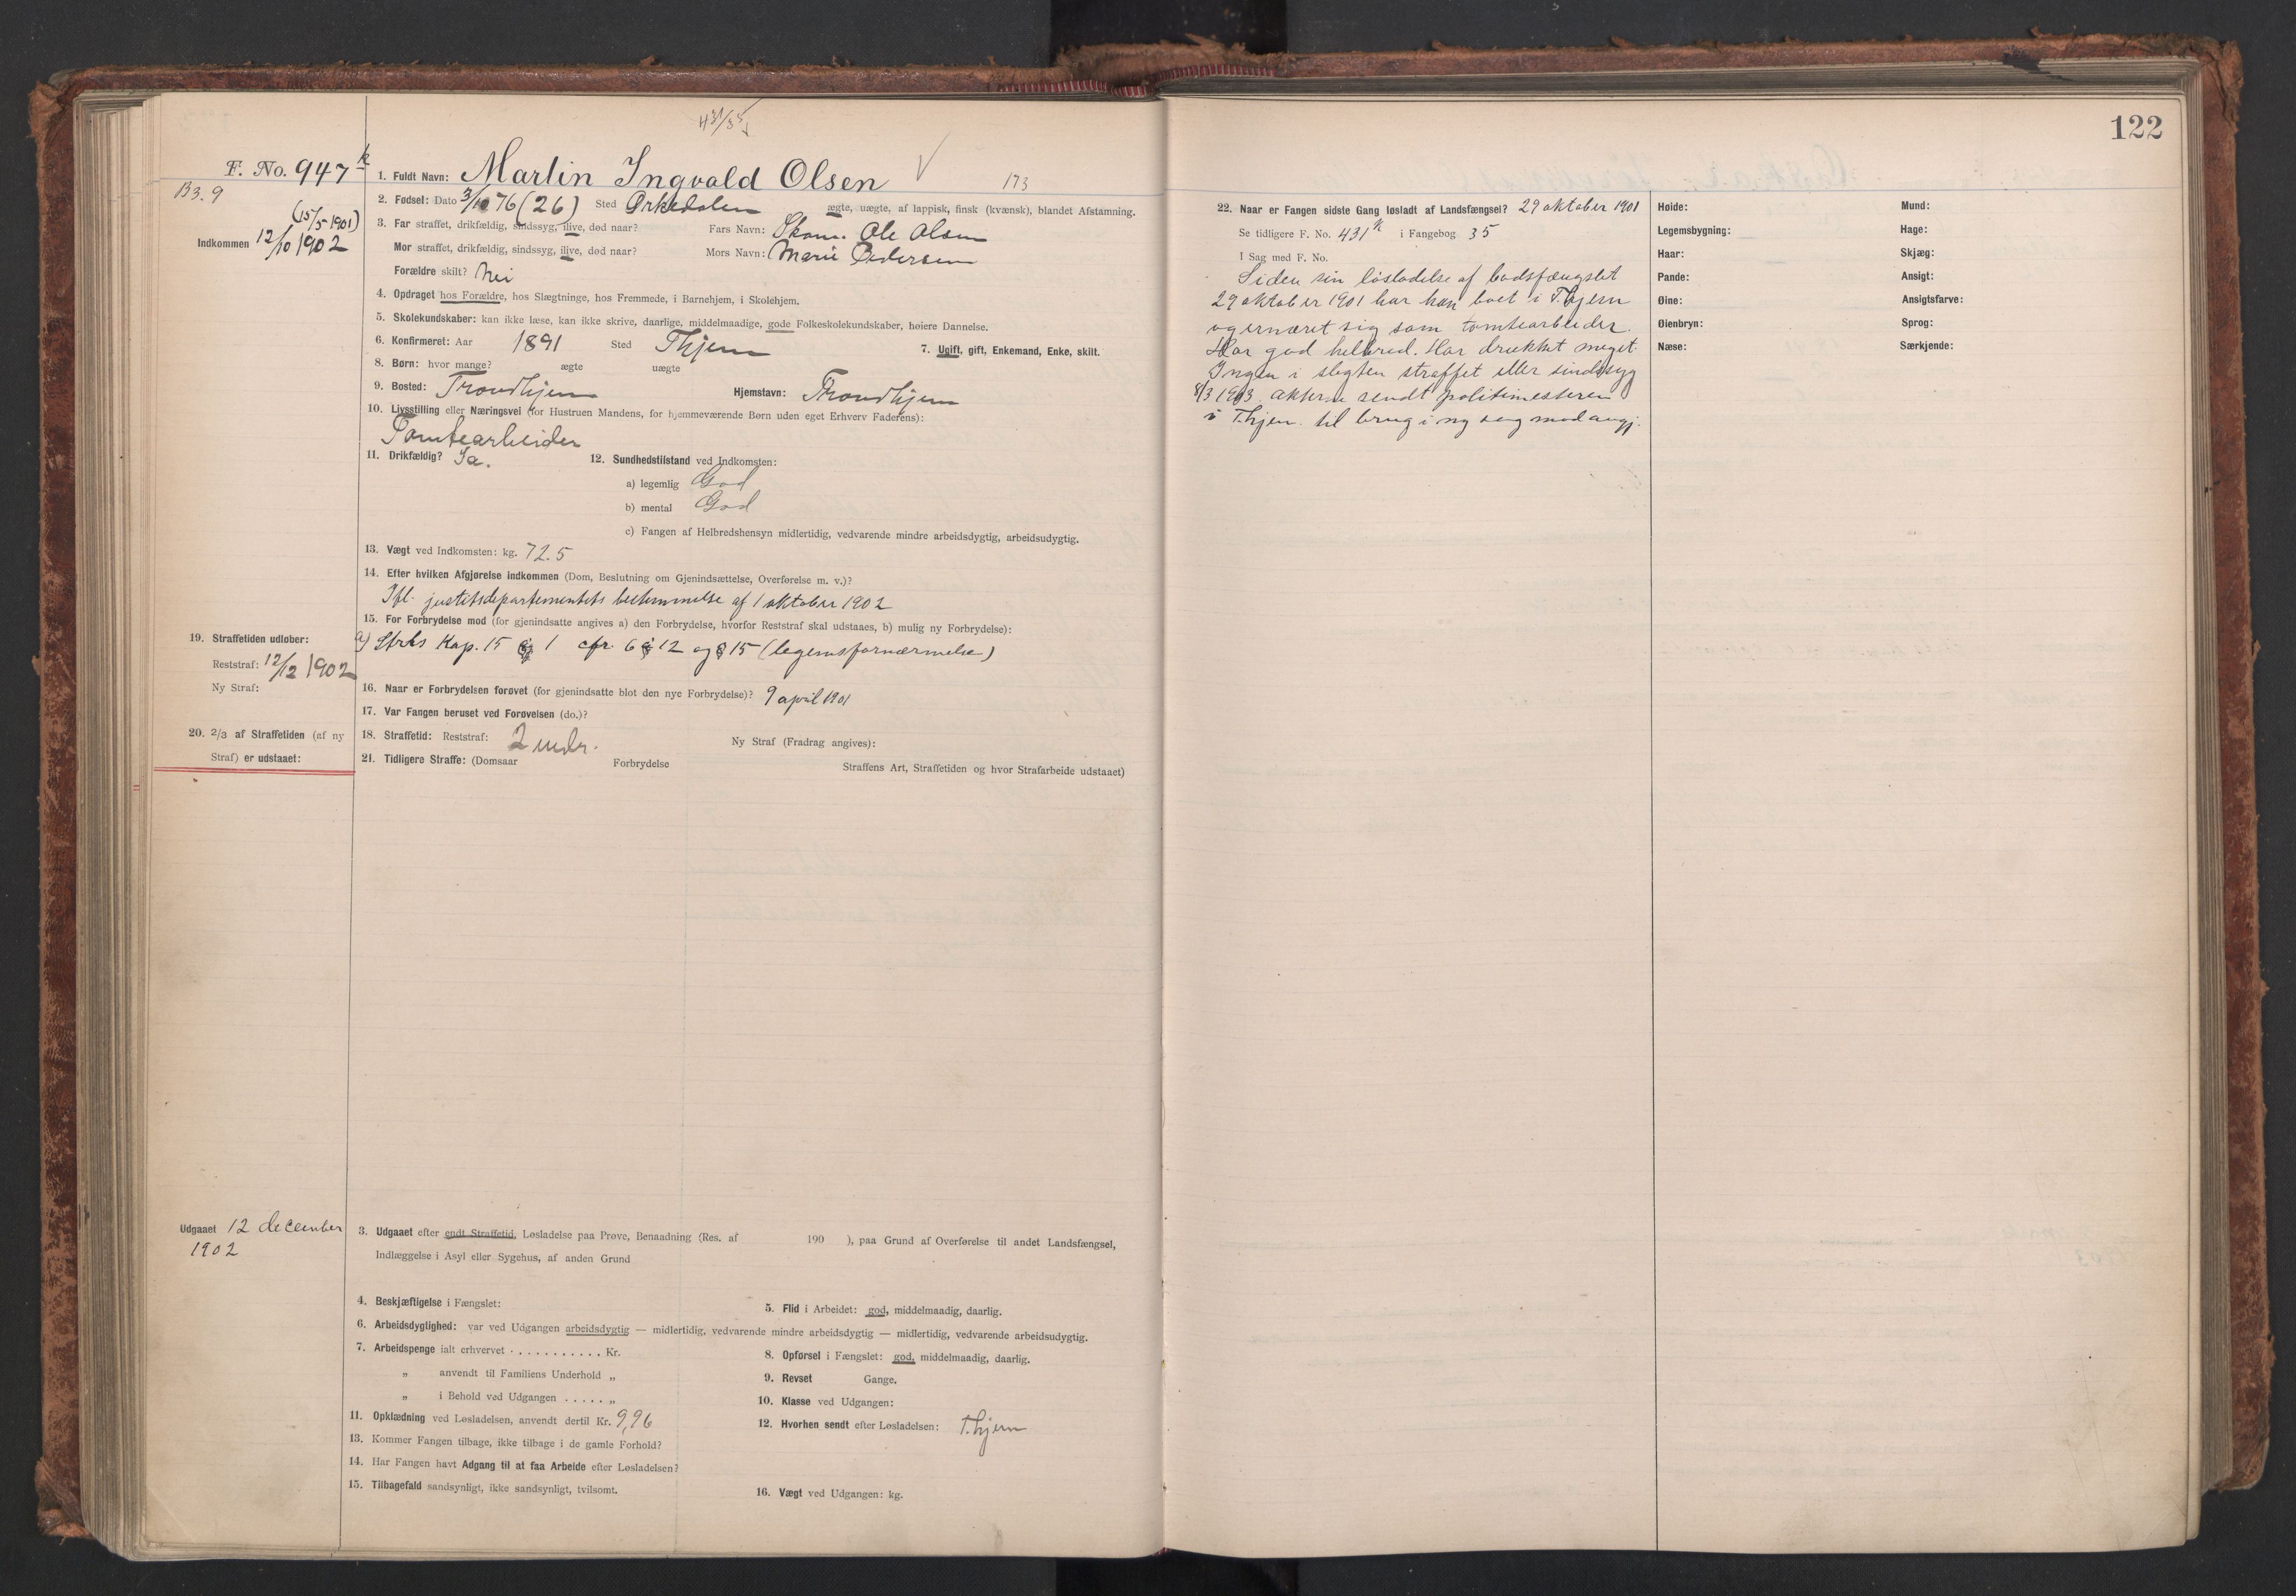 122
H 31/35
F. No. 947 k
B3. 9
(15/5 1901)
Indkommen 12/10 1902
1. Fuldt Navn: Martin Ingvald Olsen V 173
2. Fødsel: Dato 3/10 76 (26) Sted Ørkedalen ægte, uægte, af lappisk, finsk (kvænsk), blandet Afstamning.
3. Far straffet, drikfældig, sindssyg, ilive, død naar? Fars Navn: Skom. Ole Olsen
Mor straffet, drikfældig, sindssyg, ilive, død naar? Mors Navn: Marie Pedersen
Forældre skilt? Nei
4. Opdraget hos Forældre, hos Slægtninge, hos Fremmede, i Barnehjem, i Skolehjem.
5. Skolekundskaber: kan ikke læse, kan ikke skrive, daarlige, middelmaadige, gode Folkeskolekundskaber, høiere Dannelse.
6. Konfirmeret: Aar 1891 Sted Thjem 7. Ugift, gift, Enkemand, Enke, skilt.
8. Børn: hvor mange? ægte uægte
9. Bosted: Trondhjem Hjemstavn: Trondhjem
10. Livsstilling eller Næringsvei (for Hustruen Mandens, for hjemmeværende Børn uden eget Erhverv Faderens):
Tomtearbeider
11. Drikfældig? Ja. 12. Sundhedstilstand ved Indkomsten:
a) legemlig God
b) mental God
c) Fangen af Helbredshensyn midlertidig, vedvarende mindre arbeidsdygtig, arbeidsudygtig.
13. Vægt ved Indkomsten: kg. 72.5
14. Efter hvilken Afgjørelse indkommen (Dom, Beslutning om Gjenindsættelse, Overførelse m. v.)?
Ifl. justitsdepartementets bestemmelse af 1 oktober 1902
15. For Forbrydelse mod (for gjenindsatte angives a) den Forbrydelse, hvorfor Reststraf skal udstaaes, b) mulig ny Forbrydelse):
a) Strls Kap. 15 § 1 cfr. 6 § 12 og § 15 (legemsfornærmelse)
16. Naar er Forbrydelsen forøvet (for gjenindsatte blot den nye Forbrydelse)? 9 april 1901
17. Var Fangen beruset ved Forøvelsen (do.)?
18. Straffetid: Reststraf: 2 mdr. Ny Straf (Fradrag angives):
19. Straffetiden udløber:
Reststraf: 12/12 1902
Ny Straf:
20. 2/3 af Straffetiden (af ny
Straf) er udstaaet:
21. Tidligere Straffe: (Domsaar Forbrydelse Straffens Art, Straffetiden og hvor Strafarbeide udstaaet)
Udgaaet 12 december
1902
3. Udgaaet efter endt Straffetid, Løsladelse paa Prøve, Benaadning (Res. af 190 ), paa Grund af Overførelse til andet Landsfængsel,
Indlæggelse i Asyl eller Sygehus, af anden Grund
4. Beskjæftigelse i Fængslet:
5. Flid i Arbeidet: god, middelmaadig, daarlig.
6. Arbeidsdygtighed: var ved Udgangen arbeidsdygtig — midlertidig, vedvarende mindre arbeidsdygtig — midlertidig, vedvarende arbeidsudygtig.
7. Arbeidspenge ialt erhvervet . . . . . . . . . . . Kr.
8. Opførsel i Fængslet: god, middelmaadig, daarlig.
„ anvendt til Familiens Underhold „
9. Revset Gange.
„ i Behold ved Udgangen . . . . . „
10. Klasse ved Udgangen:
11. Opklædning ved Løsladelsen, anvendt dertil Kr. 9,96
12. Hvorhen sendt efter Løsladelsen: T.hjem
13. Kommer Fangen tilbage, ikke tilbage i de gamle Forhold?
14. Har Fangen havt Adgang til at faa Arbeide efter Løsladelsen?
15. Tilbagefald sandsynligt, ikke sandsynligt, tvilsomt.
16. Vægt ved Udgangen: kg.
22. Naar er Fangen sidste Gang løsladt af Landsfængsel? 29 oktober 1901
Se tidligere F. No. 431 k i Fangebog 35
I Sag med F. No.
Siden sin løsladelse af bodsfængslet
29 oktober 1901 har han boet i T.hjem
og ernæret sig som tomtearbeider.
Har god helbred. Har drukket meget.
Ingen i slegten straffet eller sindssyg
8/3 1903 akterne sendt politimesteren
i T.hjem til brug i ny sag mod angj.
Høide:
Legemsbygning:
Haar:
Pande:
Øine:
Øienbryn:
Næse:
Mund:
Hage:
Skjæg:
Ansigt:
Ansigtsfarve:
Sprog:
Særkjende: